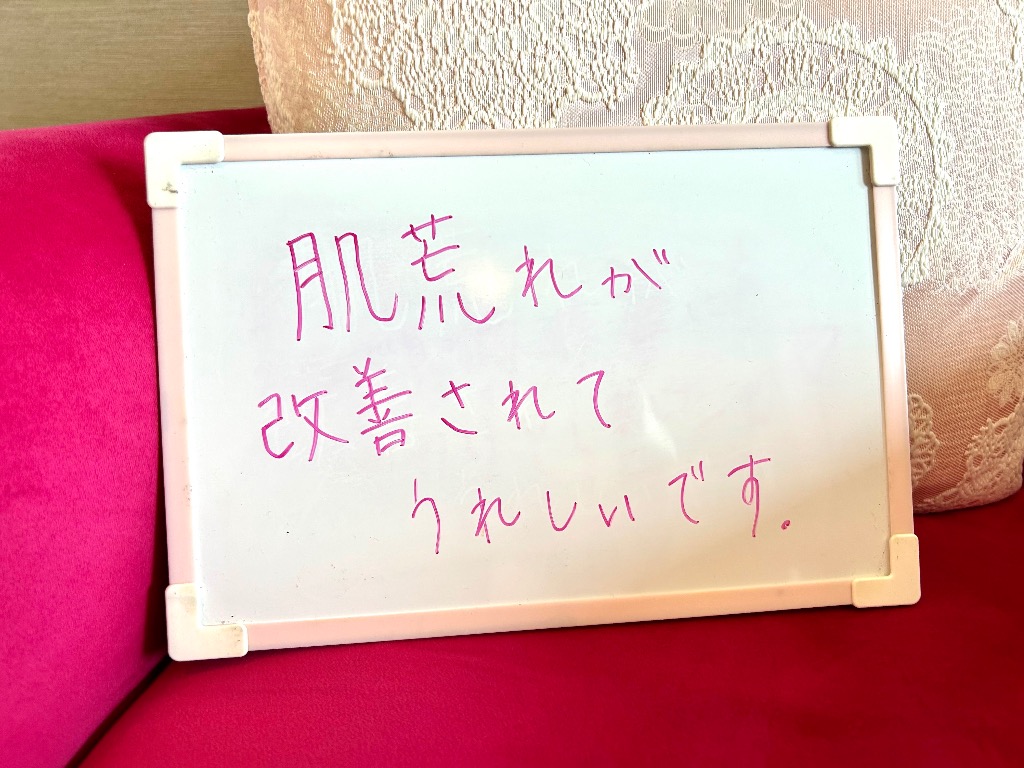 肌荒れが
改善されて
うれしいです.